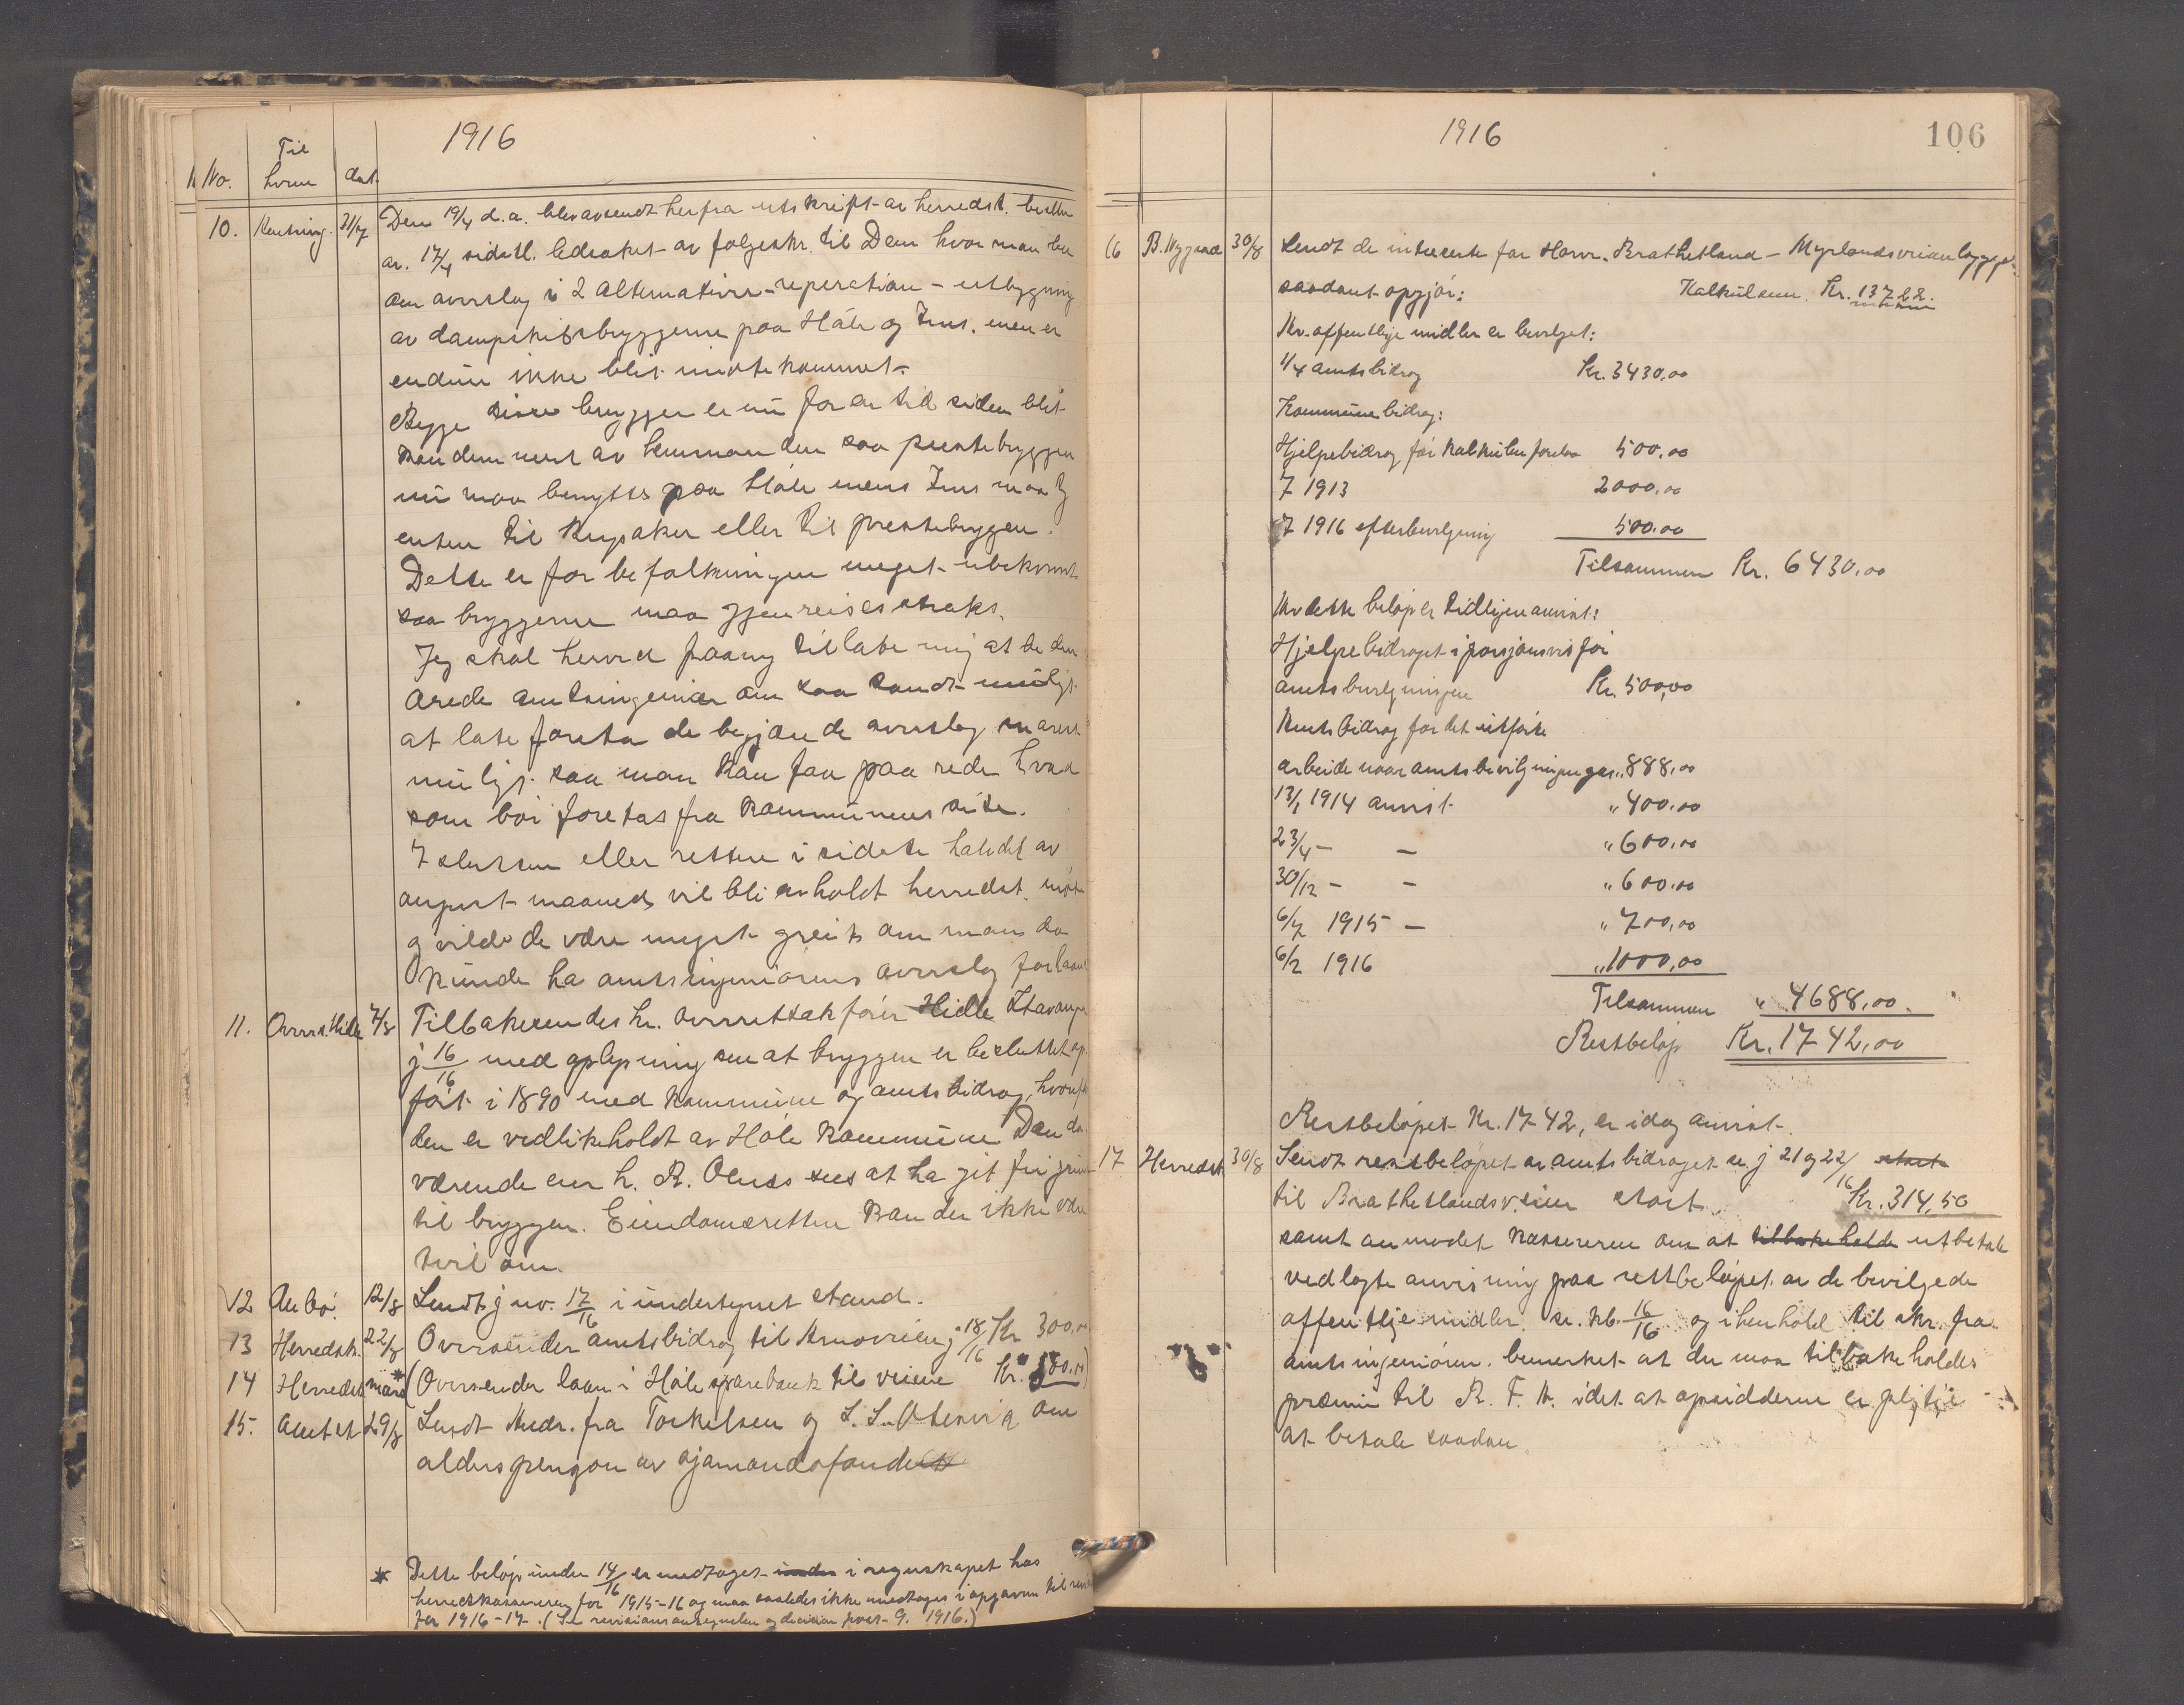 1916
No. Til hvem dat.
10. 31/7 Den 19/4 d.a. blev avsendt herfra utskrift av herredst. beslu
av. 17/4 sidstl. ledsaket av følgeskr. til Dem hvor man ber
om overslag i 2 alternativer - reperation - utbygning
av dampskibsbryggerne paa Håle og Ims. men er
endnu ikke blit imøtekommet.
Begge disse brygger er nu for en tid siden blit
kondemnert av lensmanden saa prestebryggen
nu maa benyttes paa Håle mens Ims maa ty
enten til Kupaker eller til prestebryggen.
Dette er for befolkningen meget ubekvemt
saa bryggerne maa gjenreises straks.
Jeg skal herved paany tillate mig at be den
ærede amtsingeniør om saa sandt muligt
at late foreta de begjærede overslag snarest
muligt saa man kan faa paa rede hvad
som bør foretas fra kommunens side.
I slutten eller rettere i sidste halvdel av
august maaned vil bli avholdt herredst. møte
og vilde de være meget greit om man da
kunde ha amtsingeniørens overslag forlaant
11. Overrs. Hille 7/8 Tilbakesendes hr. overretssakfører Hille Stavanger
j 16/16 med oplysning om at bryggen er besluttet op
ført i 1890 med kommune og amtsbidrag, hvorefter
den er vedlikeholdt av Håle kommune Den da
værende eier h. R. Oluss sees at ha git fri grund
til bryggen. Eiendomsretten kan der ikke være
tvil om.
12 Aubø 12/8 Sendt j no. 17/16 i undertegnet stand.
13 Herredsk. 22/8 Oversender amtsbidrag til Amoveien j 18/16 Kr 300,00
14 Herredsk (Oversender laan i Håle sparebank til veiene Kr.
15. Amtet 29/8 Sendt Andr. fra Torkelsen og L. L. Østenvig om
alderspengon av sjømandsfondet
* Dette beløp under 14/16 er medtaget under i regnskapet hos
herredskassereren for 1915-16 og maa saaledes ikke medtages i opgaven til
for 1916-17. (Se revisionsantegnelse og decision post 9. 1916.)
1916
106
16 B. Nygaard 30/8 Sendt de interserte for Brathetland - Myrlandsveien
saadant opgjør: Kalkulsum. Kr. 13722.
Av offentlige midler er bevilget:
1/4 amtsbidrag Kr. 3430,00
Kommunebidrag:
Hjelpebidrag før kalkulen forelaa 500,00
I 1913 2000,00
I 1916 efterbevilgning 500.00
Tilsammen Kr. 6430,00
Av dette beløp er tidligere anvist:
Hjelpebidraget i porsjonvis før
amtsbevilgningen Kr. 500,00
Amtsbidrag for det utførte
arbeide naar amtsbevilgningen gas „ 888,00
13/1 1914 anvist „ 400.00
23/4 - - „ 600,00
30/12 - - „ 600.00
6/7 1915 - „ 700,00
6/2 1916 „ 1000,00
Tilsammen „ 4688,00.
Restbeløp Kr. 1742,00
Restbeløpet Kr. 1742, er idag anvist.
17 Herredsk 30/8 Sendt restbeløpet av amtsbidraget se. j 21 og 22/16 stort
til Brathetlandsveien stort Kr. 314,50
samt anmodet kassereren om at tilbakeholde utbetale
vedlagte anvisning paa restbeløpet av de bevilgede
offentlige midler. se. kb. 16/16 og i henhold til skr. fra
amtsingeniøren. bemerket at der maa tilbakeholdes
præmi til R. F. A. idet at opsidderne er pligtig
at betale saadan